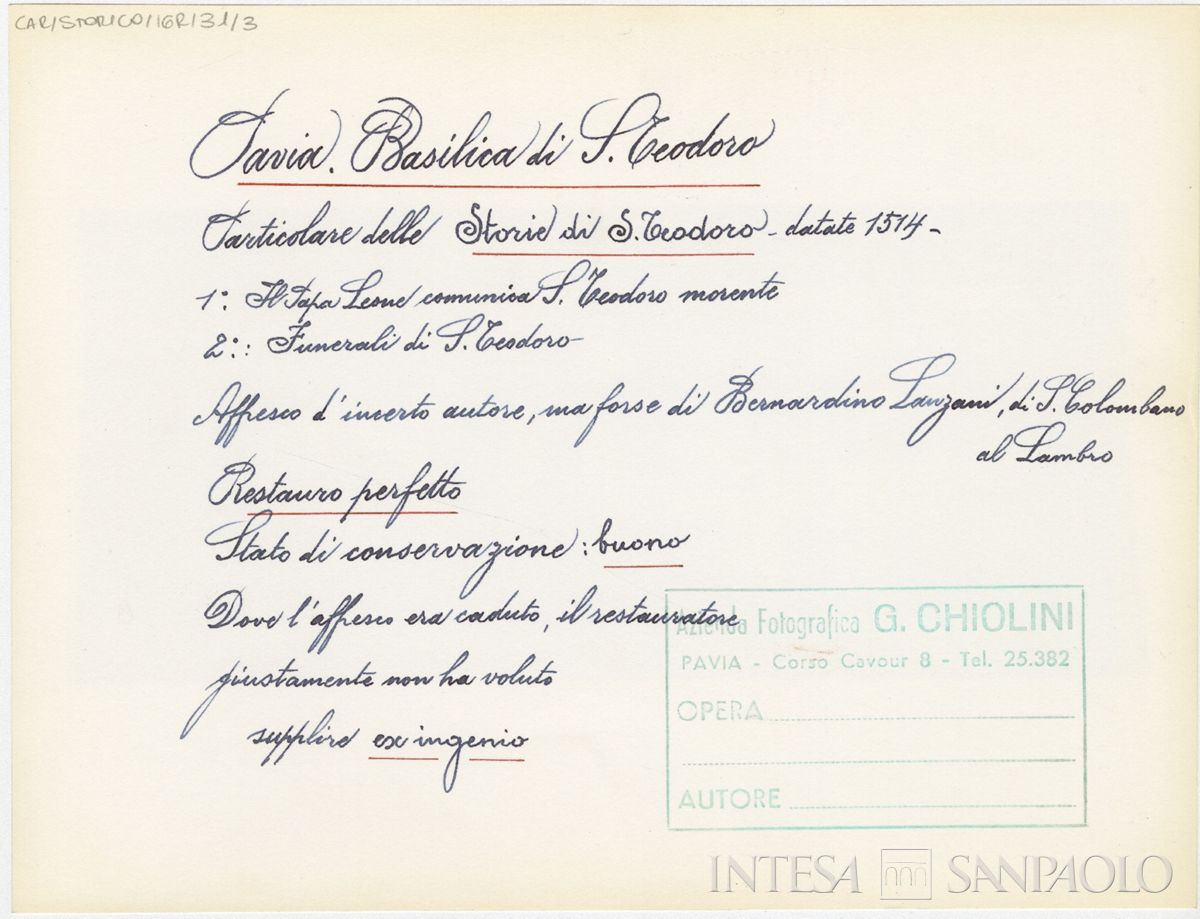 CAR/STORICO/IGR/31/3
Pavia. Basilica di S. Teodoro
Particolare delle Storie di S. Teodoro - datate 1514 -
1°: Il Papa Leone comunica S. Teodoro morente
2°: Funerali di S. Teodoro
Affresco d'incerto autore, ma forse di Bernardino Lanzani, di S. Colombano
al Lambro
Restauro perfetto
Stato di conservazione: buono
Dove l'affresco era caduto, il restauratore
giustamente non ha voluto
supplire ex ingenio
Azienda Fotografica G. CHIOLINI
PAVIA - Corso Cavour 8 - Tel. 25.382
OPERA
AUTORE
INTESA SANPAOLO